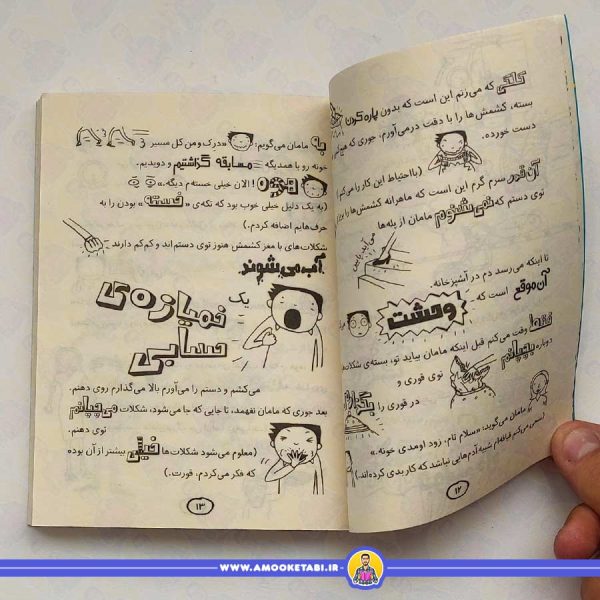 کلکی که می‌زنم این است که بدون پاره کردن
بسته، کشمش‌ها را با دقت درمی‌آورم، جوری که
دست خورده.
(بااحتیاط این کار را می‌کنم)
آن قدر سرم گرم این است که ماهرانه کشمش‌ها را
توی دستم که نمی‌شنوم مامان از پله‌ها
می‌آید پایین
تا اینکه می‌رسد دم در آشپزخانه.
آن موقع است که
وحشت
فقط وقت می‌کنم قبل اینکه مامان بیاید تو، بسته‌ی شکلات
دوباره بچپانم توی قوری و
در قوری را بگذارم
مامان می‌گوید: «سلام تام. زود اومدی خونه.»
(سعی می‌کنم قیافه‌ام شبیه آدم‌هایی نباشد که کار بدی کرده‌اند.)
۱۲
به مامان می‌گویم: «درک و من کل مسیر
خونه رو با همدیگه مسابقه گذاشتیم و دویدیم.
الان خیلی خسته‌م دیگه.»
(به یک دلیل خیلی خوب بود که تکه‌ی «خسته» بودن را به
حرف‌هایم اضافه کردم.)
شکلات‌های با مغز کشمش هنوز توی دستم‌اند و کم‌کم دارند
آب می‌شوند.
یک
خمیازه‌ی
حسابی
می‌کشم و دستم را می‌آورم بالا می‌گذارم روی دهنم.
بعد جوری که مامان نفهمد، تا جایی که جا می‌شود، شکلات می‌چپانم
توی دهنم.
(معلوم می‌شود شکلات‌ها خیلی بیشتر از آن بوده
که فکر می‌کردم. قورت.)
۱۳
WWW.AMOOKETABI.IR